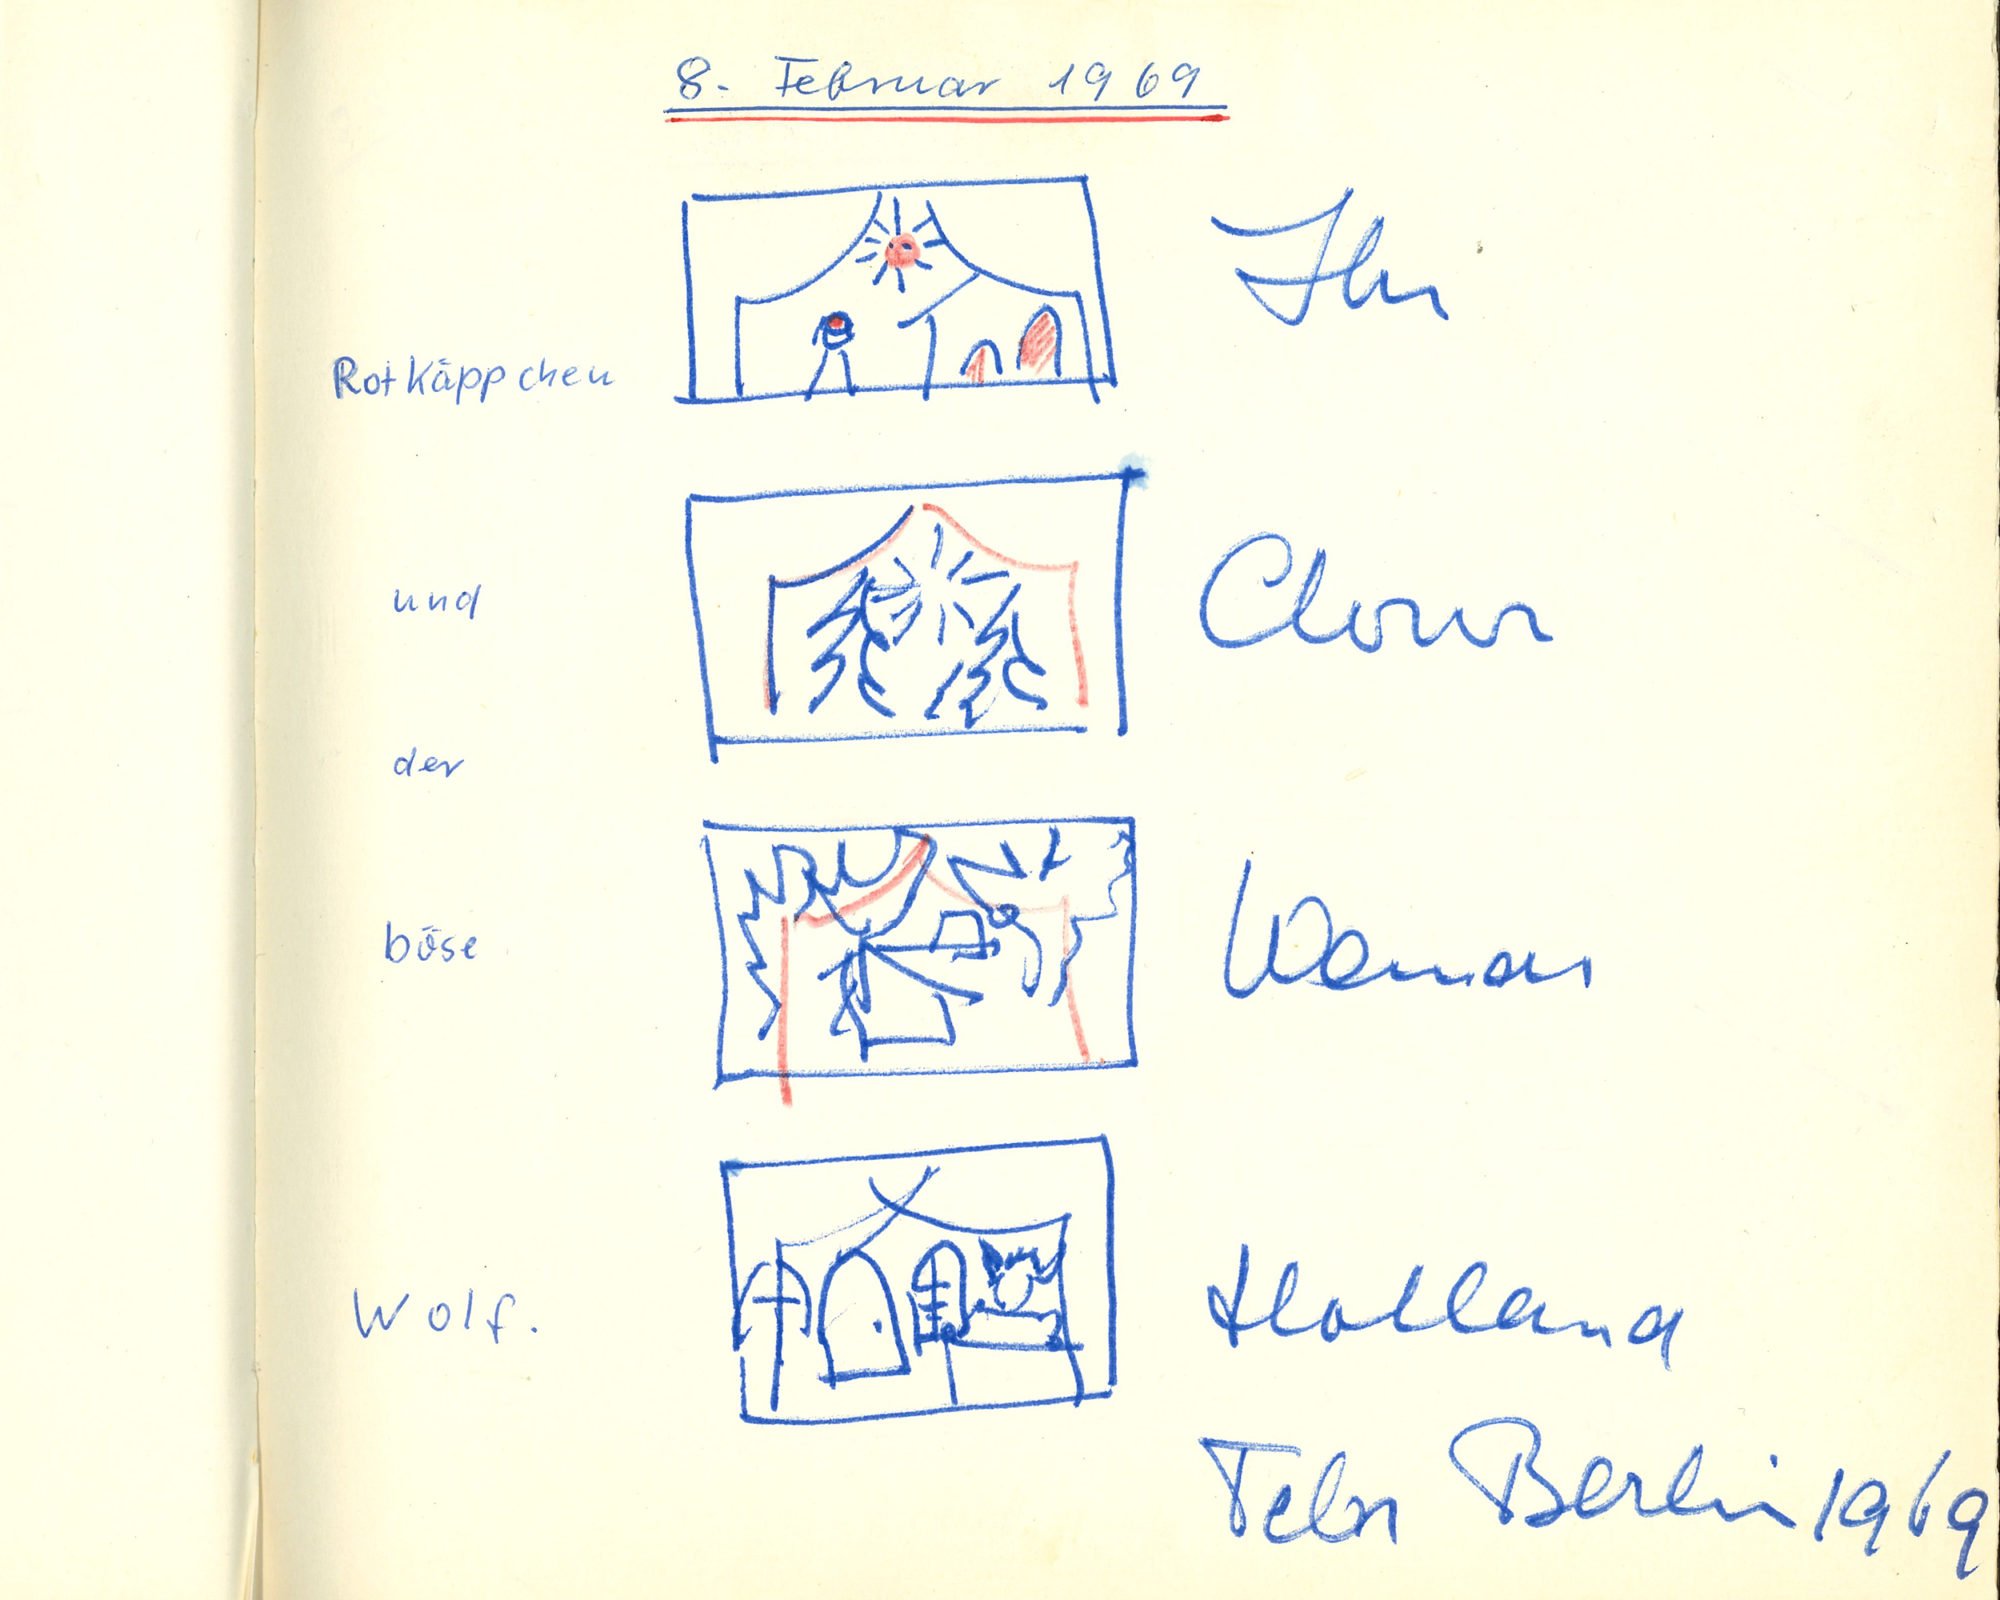 8. Februar 1969
Rotkäppchen
und
der
böse
Wolf.
Ihr
Clown
Holland
Febr Berlin 1969